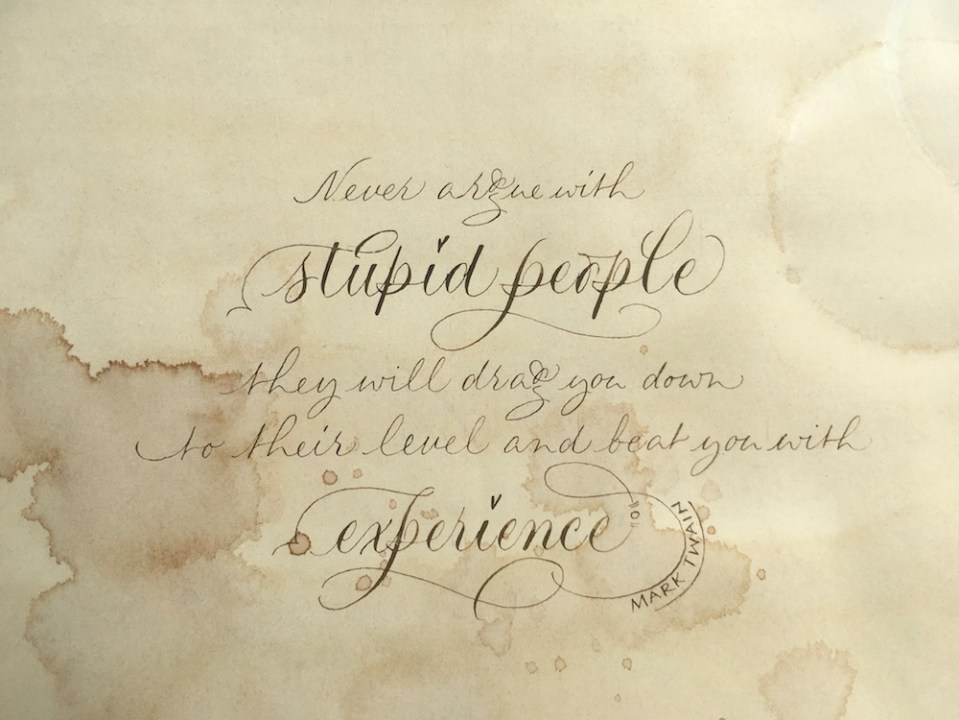 Never argue with
stupid people
they will drag you down
to their level and beat you with
experience
MARK TWAIN